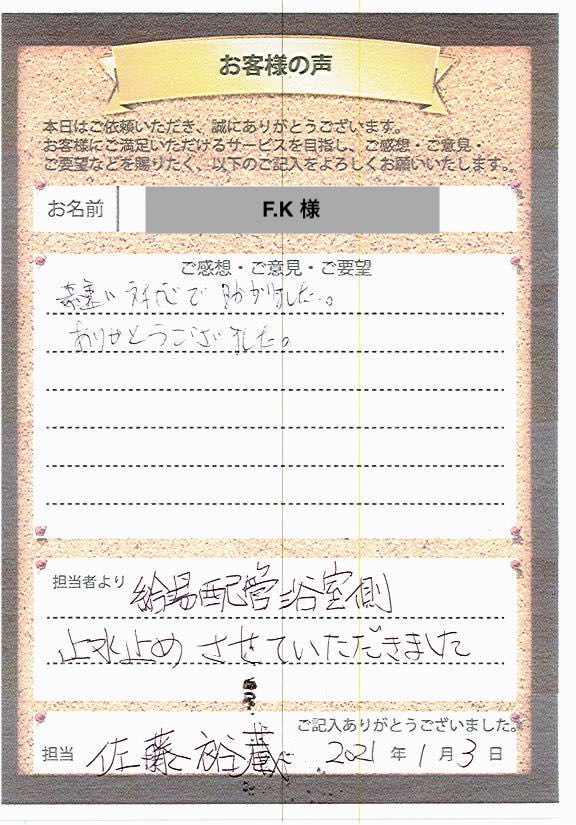 お客様の声
本日はご依頼いただき、誠にありがとうございます。
お客様にご満足いただけるサービスを目指し、ご感想・ご意見・
ご要望などを賜りたく、以下のご記入をよろしくお願いいたします。
お名前
F.K 様
ご感想・ご意見・ご要望
対応で助かりました。
ありがとうございました。
担当者より 給湯配管浴室側
止水止め させていただきました
ご記入ありがとうございました。
担当 佐藤裕蔵 2021 年 1 月 3 日